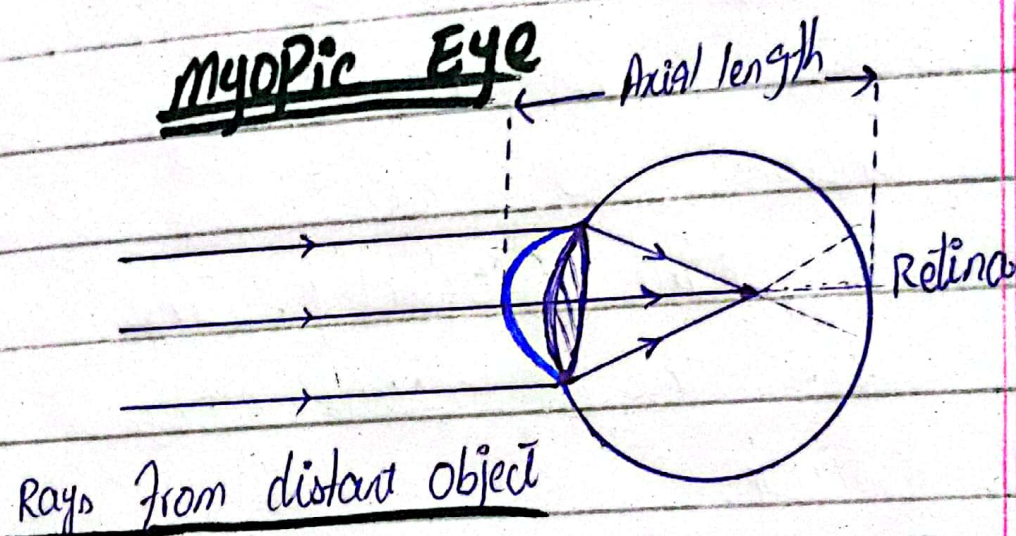 Myopic Eye
Axial length
Retina
Rays From distant object